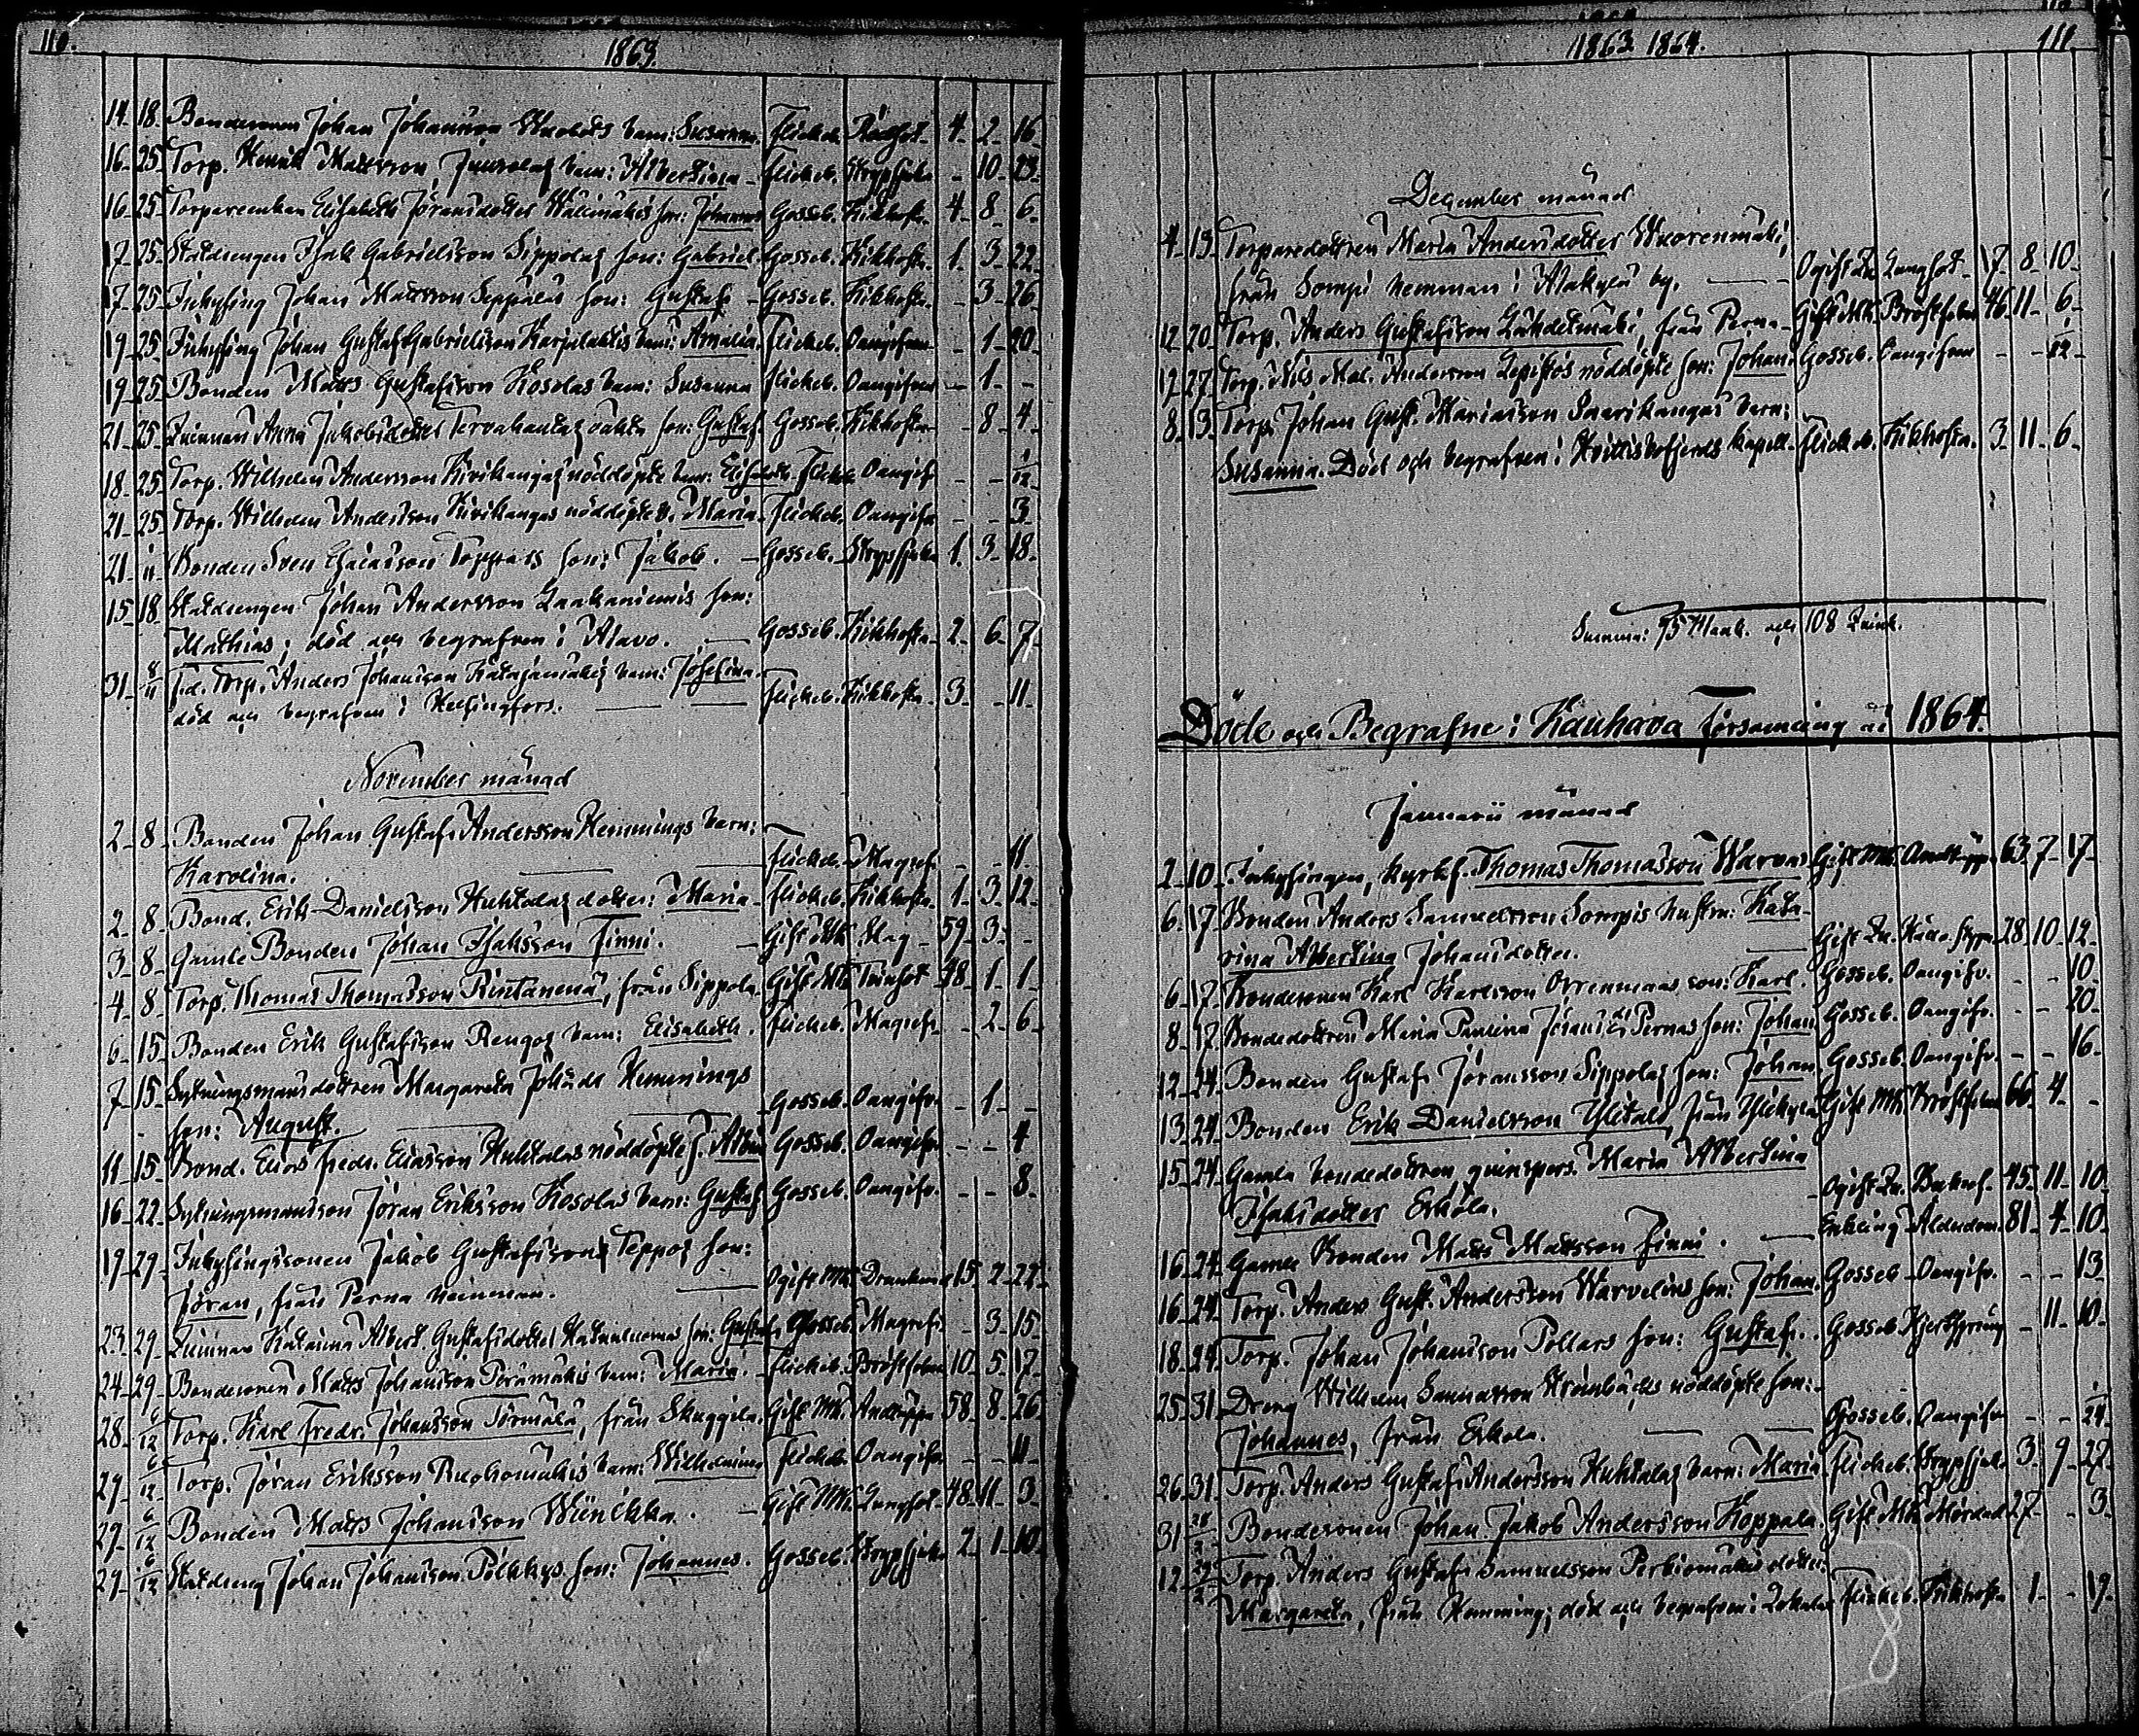 110.
1863.
14. 18. Bondesonen Johan Johansson Wuolets barn: Susanna. Flickeb. Rödsot. 4. 2. 16.
16. 25. Torp. Henrik Mattsson barn: Albertina. Flickeb. Strypsjuka. - 10. 23.
16. 25. Torpareenkan Elisabeth Jöransdotter Wällimäkis son: Johannes Gosseb. Kikhosta. 4. 8. 6.
17. 25. Statdrengen Isak Gabrielsson Sippolas son: Gabriel. Gosseb. Kikhosta. 1. 3. 22.
17. 25. Inhysing Johan Mattsson Seppäläs son: Gustaf. Gosseb. Kikhosta. - 3. 26.
19. 25. Inhysing Johan Gustaf Gabrielsson barn: Amalia. Flickeb. Oangifven - 1. 20.
19. 25. Bonden Matts Gustafsson Kosolas barn: Susanna Flickeb. Oangifven - 1. -
21. 25. Quinnan Anna Jakobsdotter Tervahautas oäkta son: Gustaf. Gosseb. Kikhosta - 8. 4.
18. 25. Torp. Wilhelm Andersson Kivikangas nöddöpte barn: Elisabeth. Flickeb. Oangif. - - 1/12
21. 25. Torp. Wilhelm Andersson Kivikangas nöddöpte b. Maria. Flickeb. Oangifv. - - 3.
21. 11. Bonden Sven Esaiasson Toppars son: Jakob. - Gosseb. Strypsjuka 1. 3. 18.
15. 18. Statdrengen Johan Andersson Laakaniemis son:
Mathias; död och begrafven i Alavo. Gosseb. Kikhosta. 2. 6. 7.
31. 8/11 F.d. Torp. Anders Johansson Katajamäkis barn: Josefina.
död och begrafven i Helsingfors. Flickeb. Kikhosta. 3. - 11.
November månad
2. 8. Bonden Johan Gustaf Andersson Hemmings barn:
Karolina. Flickeb. Magref. - - 11.
2. 8. Bond. Erik Danielsson Huhtalas dotter: Maria. Flickeb. Kikhosta. 1. 3. 12.
3. 8. Gamle Bonden Johan Isaksson Finni. - Gift Mk. Slag - 59. 3. -
4. 8. Torp. Thomas Thomasson Rintanenä, från Sippola. Gift Mk. Tvinsot 48. 1. 1.
6. 15. Bonden Erik Gustafsson Rengos barn: Elisabeth. Flickeb. Magref. - 2. 6.
7. 15. Sytningsmansdottren Margareta Johansdr Hemmings
son: August. Gosseb. Oangifv. - 1. -
11. 15. Bond. Elias Fredr. Eliasson Huhtalas nöddöpte s. Albin Gosseb. Oangifv. - - 4
16. 22. Sytningsmanson Jöran Eriksson Kosolas barn: Gustaf. Gosseb. Oangifv. - - 8.
19. 29. Inhysingssonen Jakob Gustafssons Teppos son:
Jöran, från Perna hemman. Ogift Mk. Drunknad 15. 2. 22.
23. 29. Quinnan Katarina Albert. Gustafsdotter son: Gustaf. Gosseb. Magref. - 3. 15.
24. 29. Bondesonen Matts Johansson Perämäkis barn: Maria. Flickeb. Bröstfeber 10. 5. 17.
28. 6/12 Torp. Karl Fredr. Johansson Törmälä, från Skuggila. Gift Mk. Andtäppa 58. 8. 26.
29. 6/12 Torp. Jöran Eriksson Ruohomäkis barn: Wilhelmina Flickeb. Oangifv. - - 11.
29. 6/12 Bonden Matts Johansson Wiinikka. - Gift Mk. Lungsot. 48. 11. 3.
29. 6/12 Statdreng Johan Johansson Pölkkys son: Johannes. Gosseb. Strypsjuk. 2. 1. 10.
1863. 1864.
111
December månad
4. 13. Torparedottren Maria Andersdotter Wuorenmäki,
från Sompi hemman i Alakylä by. Ogift Qk. Lungsot. 17. 8. 10.
12. 20. Torp. Anders Gustafsson Lähdesmäki, från Perna. Gift Mk. Bröstfeber 46. 11. 6.
12. 27. Torp. Nils Mat. Andersson Lepistös nöddöpte son: Johan. Gosseb. Oangifven - - 1/12
8. 13. Torp. Johan Gust. Mariasson Saarikangas barn:
Susanna. Död och begrafven i Kapell. Flickeb. Kikhosta. 3. 11. 6.
Summa: 95 Mank. och 108 Quink.
Döde och Begrafne i Kauhava Församling år 1864.
Januarii månad
2. 10. Inhysingen, kyrkf. Thomas Thomasson Warvas Gift Mk. Andtäppa 63. 7. 17.
6. 17. Bonden Anders Samuelsson Sompis hustru: Kata-
rina Albertina Johansdotter. Gift Qk. 28. 10. 12.
6. 17. Bondesonen Karl Karlsson Orrenmaas son: Karl. Gosseb. Oangifv. - - 10.
8. 17. Bondedottren Maria Paulina Jöransdr Pernas son: Johan Gosseb. Oangifv. - - 20.
12. 24. Bonden Gustaf Jöransson Sippolas son: Johan. Gosseb. Oangifv. - - 16.
13. 24. Bonden Erik Danielsson Ylitalo, från Ylikylä Gift Mk. Bröstfeber 66. 4. -
15. 24. Gamla bondedottren, quinspers. Maria Albertina
Isaksdotter Erkola. Ogift Qk. 45. 11. 10.
16. 24. Gamle Bonden Matts Mattsson Finni. Enkling Ålderdom. 81. 4. 10.
16. 24. Torp. Anders Gust. Andersson Warvelins son: Johan. Gosseb. Oangifv. - - 13
18. 24. Torp. Johan Johansson Pollars son: Gustaf. Gosseb. Hjertsprång - 11. 10.
25. 31. Dreng Wilhelm nöddöpte son:
Johannes, från Erkola. Gosseb. Oangifv. - - 1/24
26. 31. Torp. Anders Gustaf Andersson Huhtalas barn: Maria. Flickeb. Strypsjuk. 3. 9. 27.
31. Bondesonen Johan Jakob Andersson Koppala. Gift Mk. Mördad 27. - 3.
12. Torp. Anders Gustaf Samuelsson dotter:
Margareta, från Hemming; död och begrafven i Flickeb. Kikhosta 1. - 19.